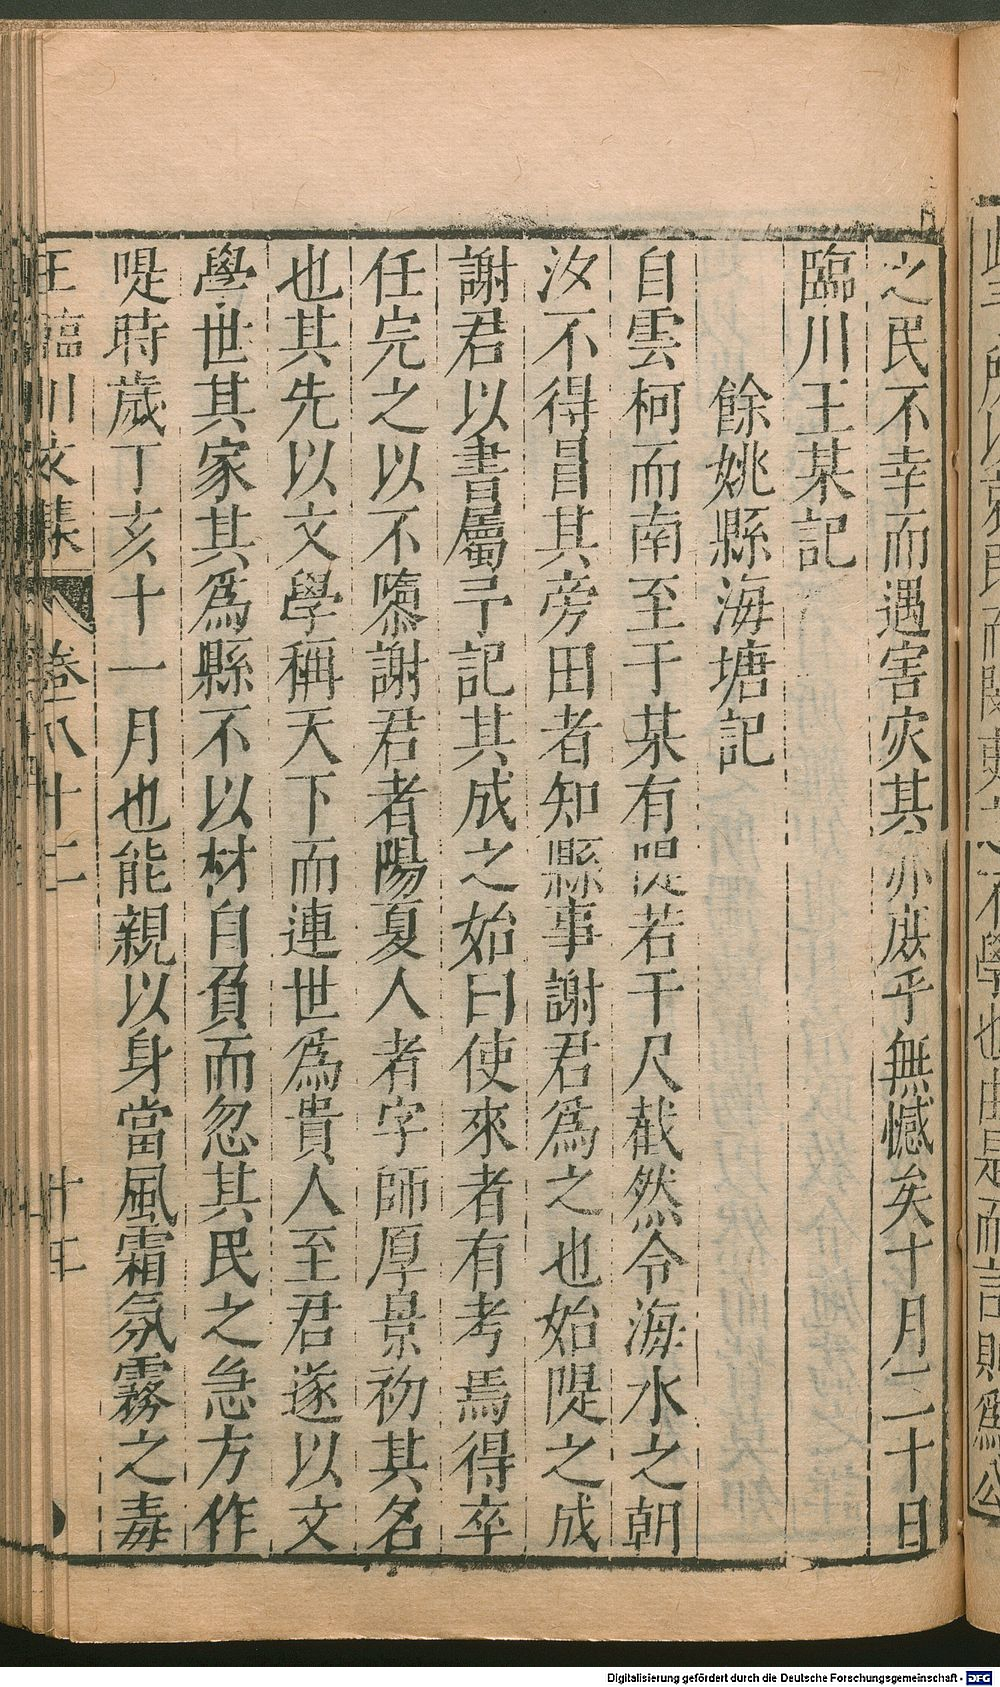 之民不幸而遇害灾其亦庶乎無憾矣十月二十日
臨川王某記
餘姚縣海塘記
自雲柯而南至于某有隄若干尺截然令海水之朝
汝不得冒其旁田者知縣事謝君爲之也始隄之成
謝君以書屬予記其成之始曰使來者有考焉得卒
任完之以不隳謝君者陽夏人者字師厚景初其名
也其先以文學稱天下而連世爲貴人至君遂以文
學世其家其爲縣不以材自負而忽其民之急方作
隄時歲丁亥十一月也能親以身當風霜氛霧之毒
王臨川文集
卷八十二
Digitalisierung gefördert durch die Deutsche Forschungsgemeinschaft - DFG